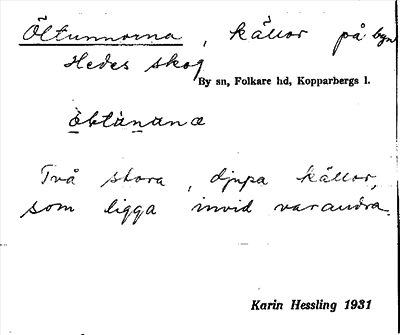 Öltunnorna, källor på byn
Hedes skog
By sn, Folkare hd, Kopparbergs l.
Två stora, djupa källor,
som ligga invid varandra.
Karin Hessling 1931